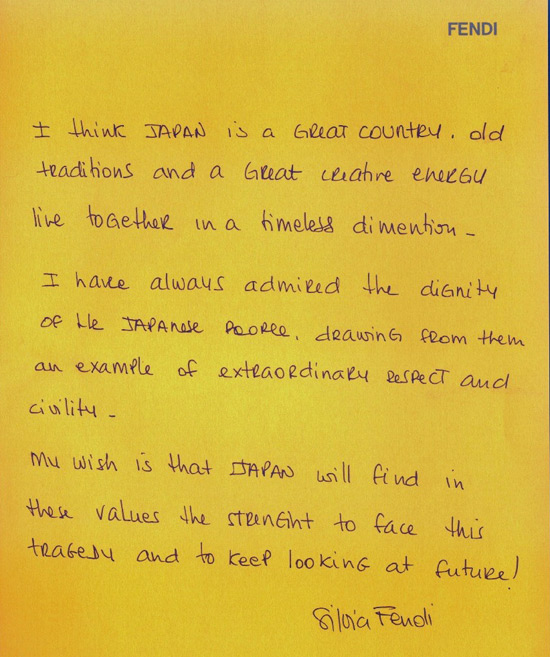 FENDI
I think JAPAN is a GREAT COUNTRY. old
traditions and a Great creative ENERGY
live together in a timeless dimention -
I have always admired the dignity
of the JAPANESE PEOPLE, drawing from them
an example of extraordinary respect and
civility -
My wish is that JAPAN will find in
these values the STRENGHT to face this
TRAGEDY and to keep looking at future!
Silvia Fendi